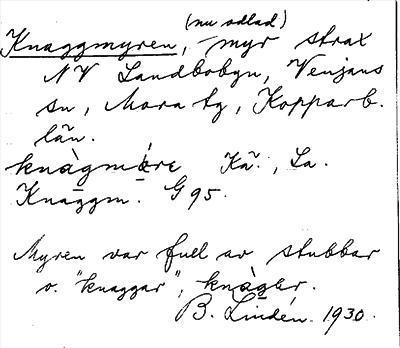 (nu odlad)
Knaggmyren, – myr strax
NV Landbobyn, Venjans
sn, Mora tg, Kopparb.
län.
Kā., La.
Knaggm. G 95.
Myren var full av stubbar
o. "knaggar", knàgạr.
B. Lindén. 1930.